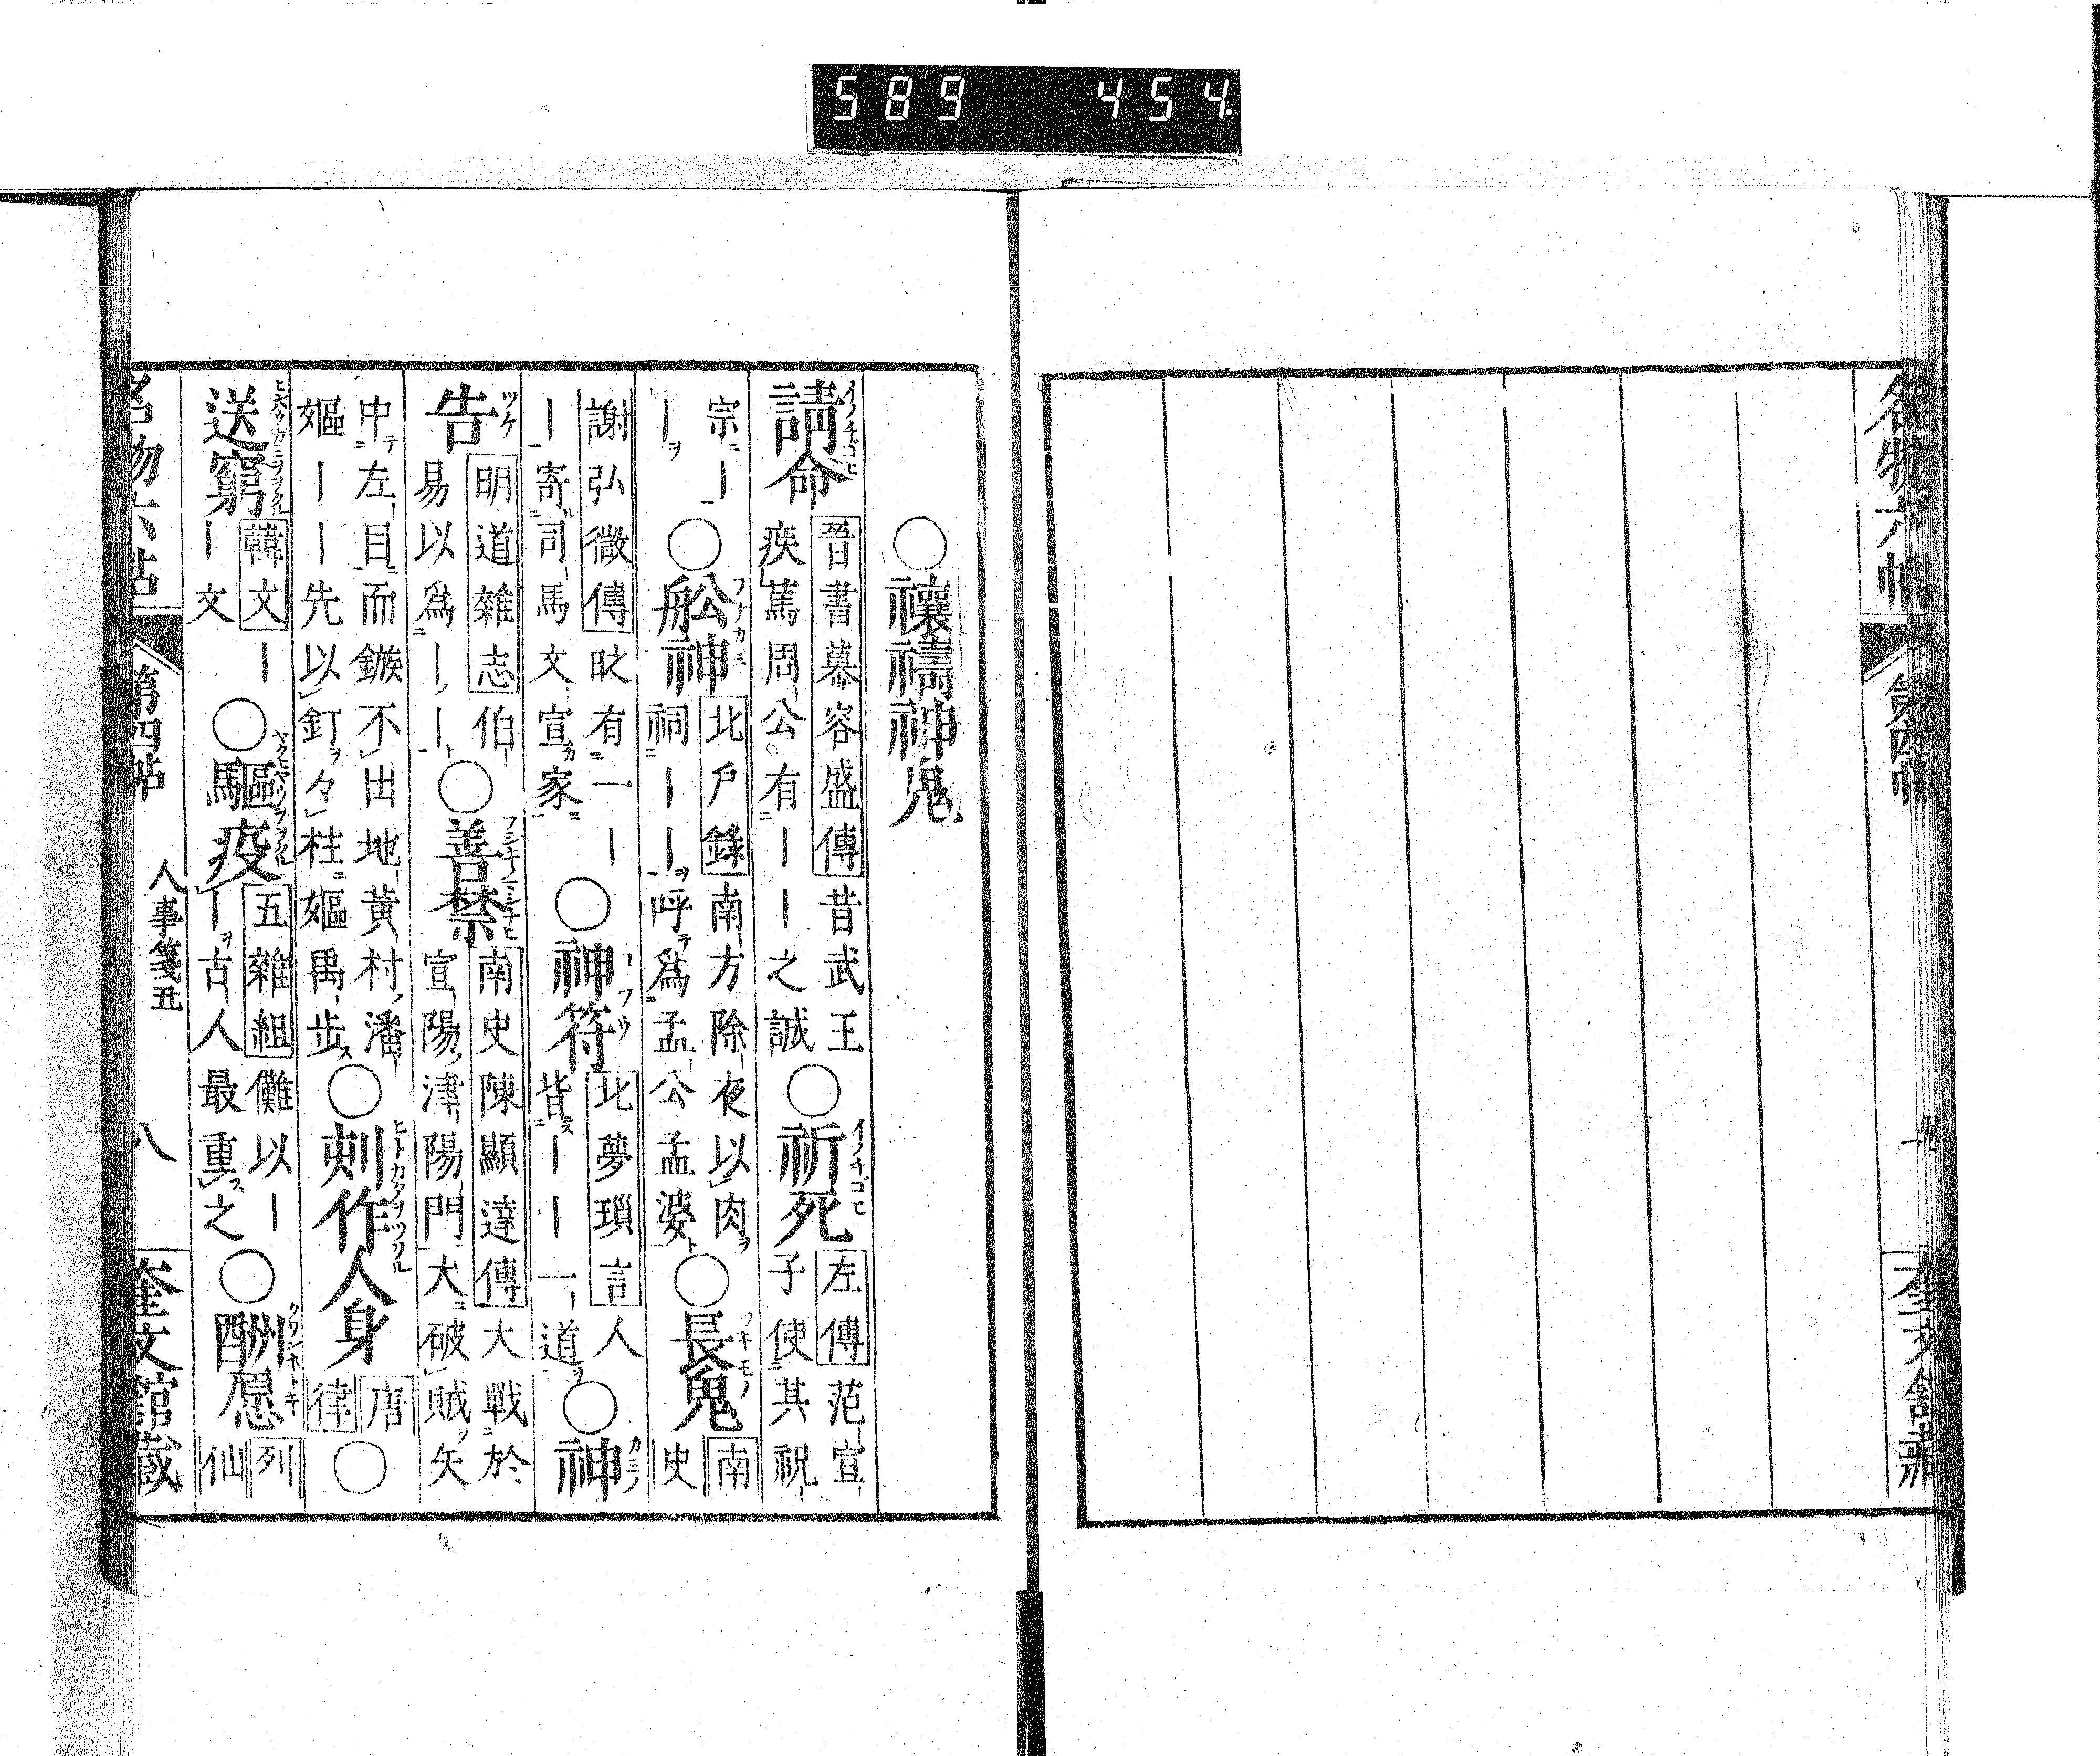 589 454
名物六帖 第四帖 奎文館藏
○禳禱神鬼
請命 イノチゴヒ 晉書慕容盛傳 昔武王疾篤周公有――之誠 ○祈死 イノチゴヒ 左傳 范宣子使其祝
宗―― ○舩神 フナカミ 北戶錄 南方除夜以肉祠――呼爲孟公孟婆 ○長鬼 ツキモノ 南史
謝弘微傳 旼有一――寄司馬文宣家 ○神符 ―フウ 北夢瑣言 人皆――一道 ○神 カミノ
告 ツケ 明道雜志 伯易以爲―― ○善禁 フシキノマジナヒ 南史陳顯達傳 大戰於宣陽津陽門大破賊矢
中左目而鏃不出地黃村潘嫗――先以釘々柱嫗禹步 ○刺作人身 ヒトカタヲツクル 唐律 ○
送窮 韓文 ――文 ○驅疫 ヤクヒヤウヲヲクル 五雜組 儺以――古人最重之 ○酬愿 クワンホトキ 列仙
名物六帖 第四帖 人事箋五 八 奎文館藏